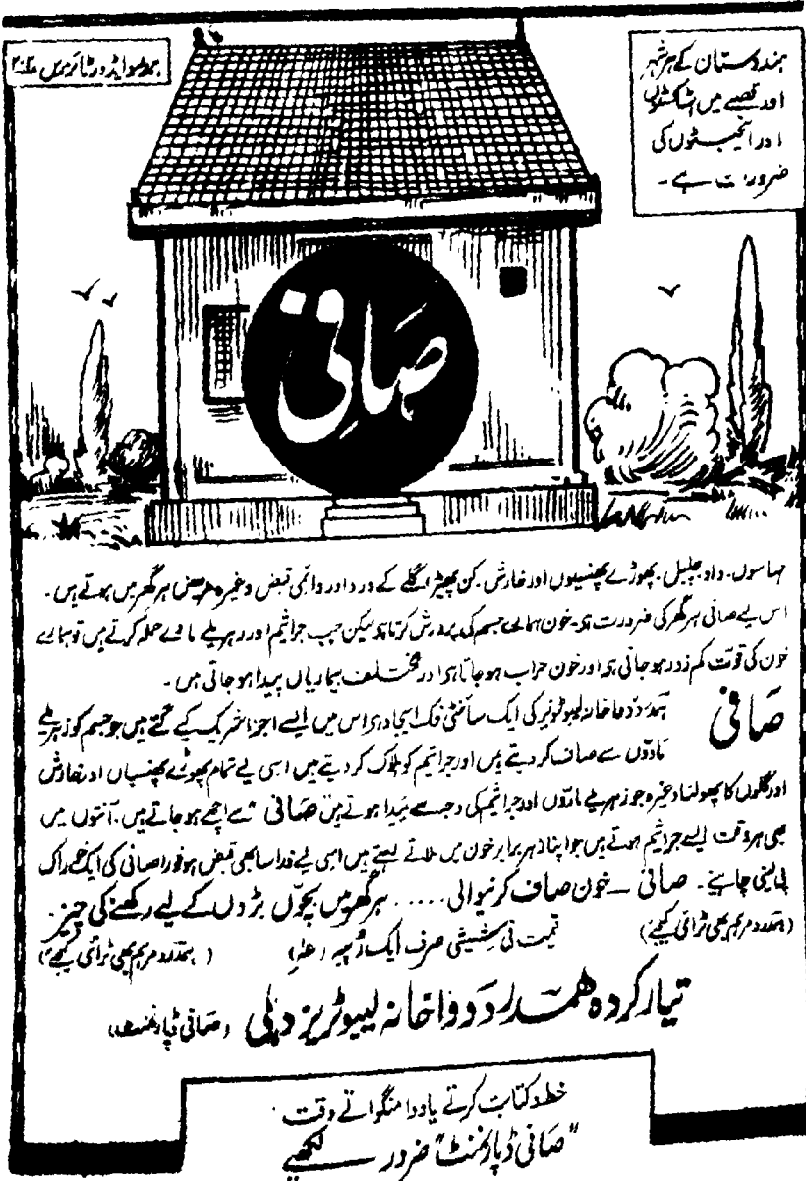 ہندوستان کے ہر شہر
اور قصبے میں اسٹاکسٹوں
اور ایجنٹوں کی
ضرورت ہے۔
صافی
مہاسوں۔ داد چنبل۔ پھوڑے پھنسیوں اور خارش۔ کن پھیڑ، گلے کے درد اور دائمی قبض وغیرہ مریض ہر گھر میں ہوتے ہیں۔
اس لیے صافی ہر گھر کی ضرورت ہے۔ خون ہمارے جسم کی پرورش کرتا ہے لیکن جب جراثیم اور زہریلے مادے حملہ کرتے ہیں تو ہمارے
خون کی قوت کم زور ہو جاتی ہے اور خون خراب ہو جاتا ہے اور مختلف بیماریاں پیدا ہو جاتی ہیں۔
صافی ہمدرد دواخانہ لیبوٹریز کی ایک سائنٹی فک ایجاد ہے اس میں ایسے اجزا شریک کیے گئے ہیں جو جسم کو زہریلے
مادّوں سے صاف کر دیتے ہیں اور جراثیم کو ہلاک کر دیتے ہیں اسی لیے تمام پھوڑے پھنسیاں اور خارش
اور گلوں کا پھولنا وغیرہ جو زہریلے مادّوں اور جراثیم کی وجہ سے پیدا ہوتے ہیں صافی سے اچھے ہو جاتے ہیں۔ آنتوں میں
بھی ہر وقت ایسے جراثیم ہوتے ہیں جو اپنا زہر برابر خون میں ملاتے رہتے ہیں اسی لیے ذرا سا بھی قبض ہو فوراً صافی کی ایک خوراک
پی لینی چاہیئے۔ صافی — خون صاف کرنیوالی ..... ہر گھر میں بچوں بڑوں کے لیے رکھنے کی چیز۔
(ہمدرد مرہم بھی ٹرائی کیجیے) قیمت فی شیشی صرف ایک روپیہ (عہ) (ہمدرد مرہم بھی ٹرائی کیجیے)
تیار کردہ ہمدرد دواخانہ لیبوٹریز دہلی (صافی ڈپارٹمنٹ)
خط و کتابت کرتے یا دوا منگواتے وقت
"صافی ڈپارٹمنٹ" ضرور لکھیے